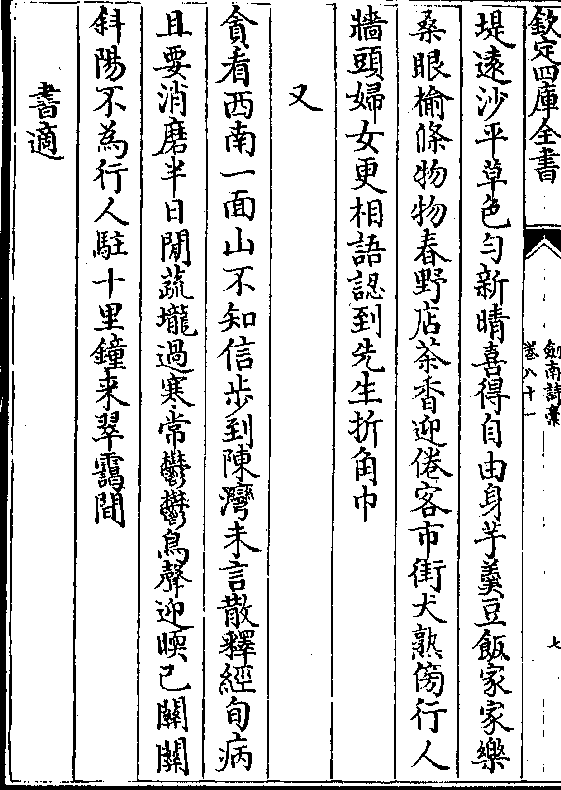 欽定四庫全書
劍南詩稾
卷八十一
七
堤遠沙平草色勻新晴喜得自由身芋羮豆飯家家樂
桑眼榆條物物春野店茶香迎倦客市街犬熟傍行人
牆頭婦女更相語認到先生折角巾
又
貪看西南一面山不知信歩到陳灣未言散釋經旬病
且要消磨半日閒蔬壠過寒常鬱鬱鳥聲迎暝已關關
斜陽不為行人駐十里鐘来翠靄間
書適